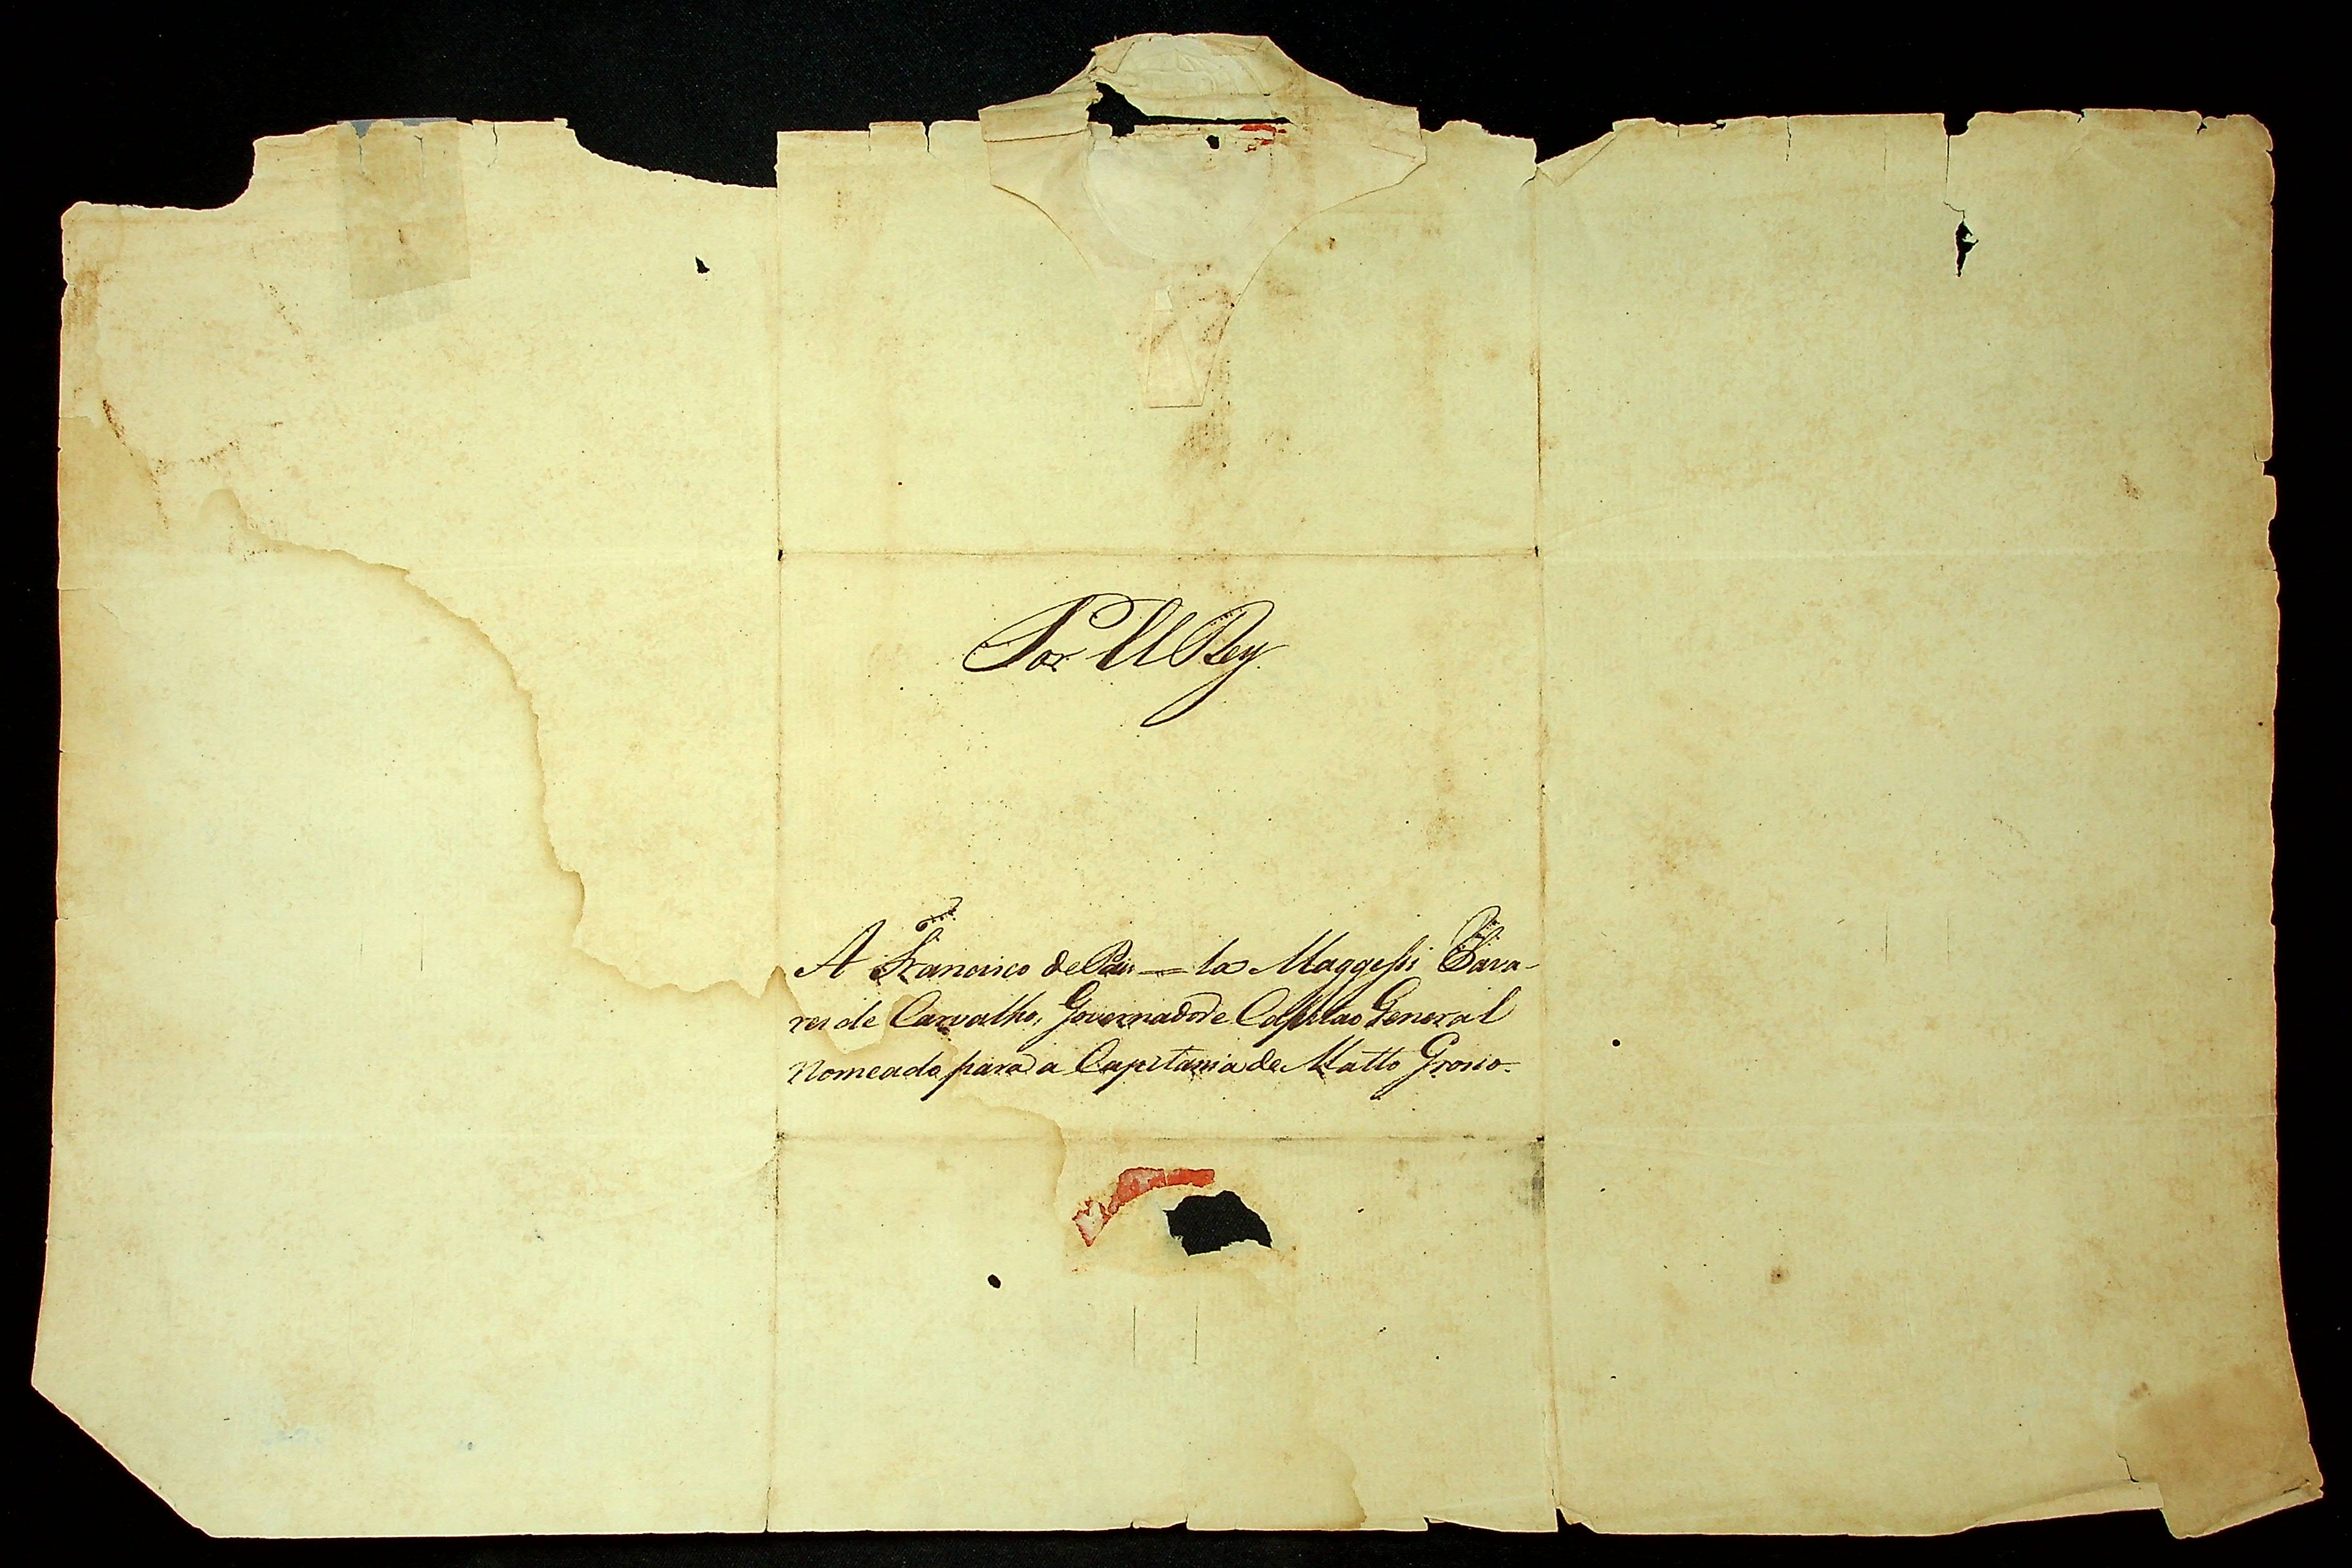 Por ElRey
A Francisco de Pau=la Maggessi Tava-
res de Carvalho, Governador e Capitão General
Nomeado para a Capitania de Matto Grosso.